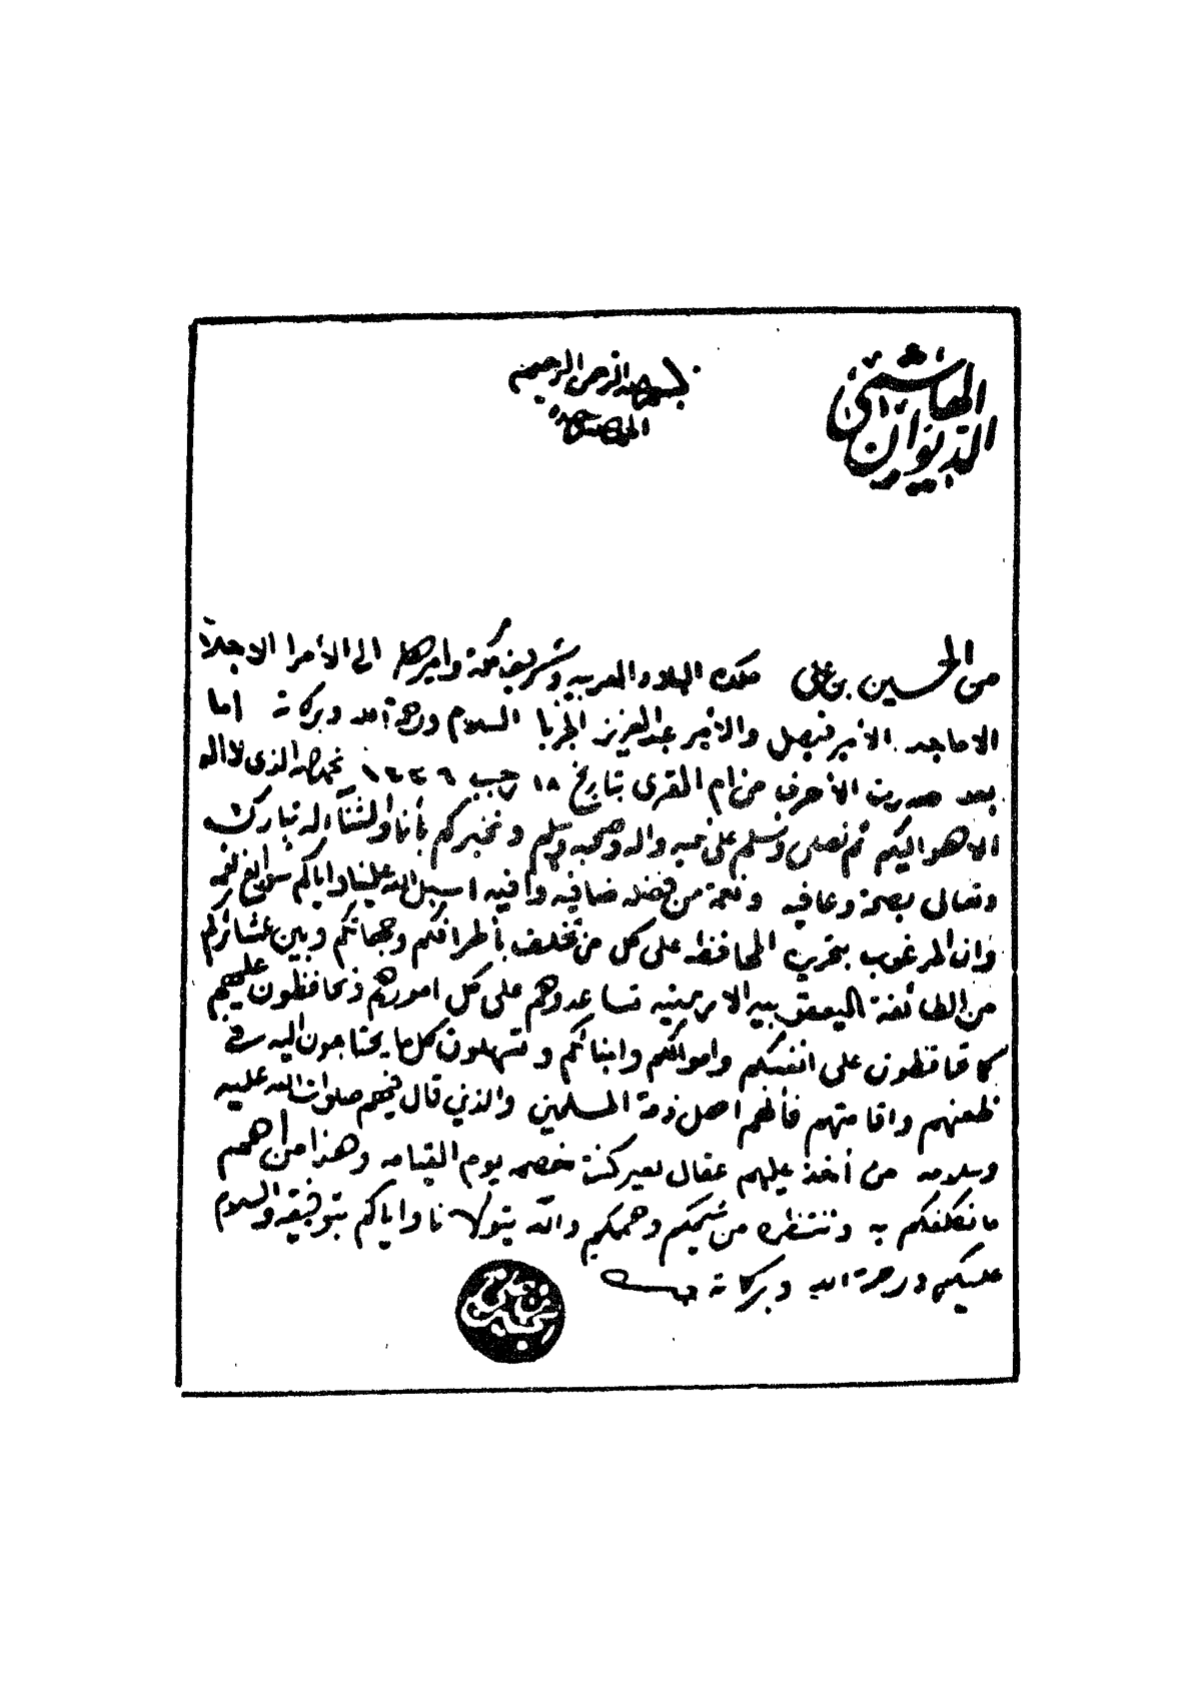 الديوان الهاشمي
بسم الله الرحمن الرحيم
الحمد لله وحده
من الحسين بن علي ملك البلاد العربيه وشريف مكة واميرها الى الأمرا الاجلاء
الاماجد الأمير فيصل والأمير عبدالعزيز الجربا السلام ورحمة الله وبركاته اما
بعد صدرت الأحرف من ام القرى بتاريخ ١٨ رجب ١٣٣٦ نحمد الله الذى لا اله
الا هو اليكم ثم نصلى ونسلم على نبيه واله وصحبه وسلم ونخبركم بأنا والثناء له تبارك
وتعالى بصحة وعافيه ونعمة من فضله ضافيه وافيه اسبل الله علينا واياكم سوابغ نعمه
وان المرغوب بتحريره المحافظه على كل من تخلف بأطرافكم وجهاتكم وبين عشائركم
من الطائفة اليعقوبيه الارمنيه تساعدوهم على كل امورهم وتحافظون عليهم
كما تحافظون على انفسكم واموالكم وابنائكم وتسهلون كل ما يحتاجون اليه في
ظعنهم واقامتهم فأنهم اهل ذمة المسلمين والذي قال فيهم صلوات الله عليه
وسلامه من أخذ عليهم عقال بعير كنت خصمه يوم القيامه وهذا من اهم
ما نكلفكم به وننتظره من شيمكم وهممكم والله يتولانا واياكم بتوفيقه والسلام
عليكم ورحمة الله وبركاته